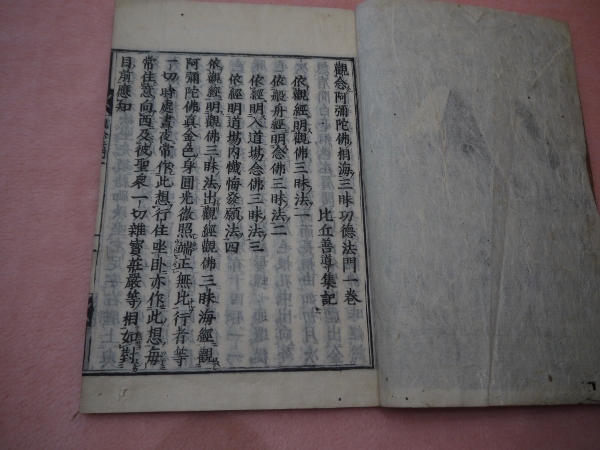 觀念阿彌陀佛相海三昧功德法門一卷
比丘善導集記
依觀經明觀佛三昧法一
依般舟經明念佛三昧法二
依經明入道場念佛三昧法三
依經明道場內懺悔發願法四
依觀經明觀佛三昧法出觀經觀佛三昧海經觀
阿彌陀佛真金色身圓光徹照端正無比行者等
一切時處晝夜常作此想行住坐臥亦作此想每
常住意向西及彼聖衆一切雜寶莊嚴等相如對
目前應知